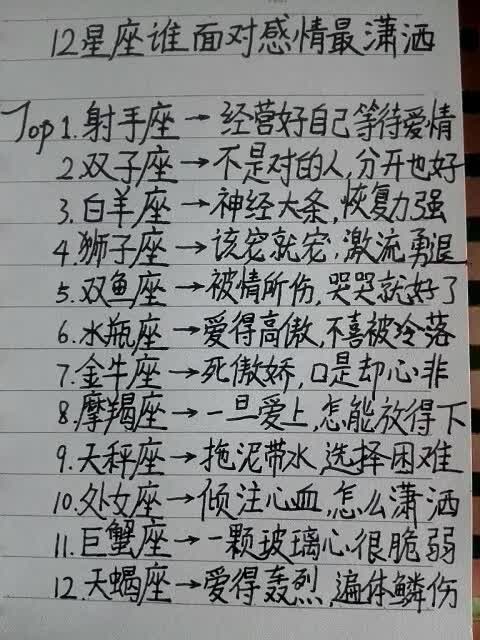 12星座谁面对感情最潇洒
Top 1.射手座→经营好自己等待爱情
2.双子座→不是对的人,分开也好
3.白羊座→神经大条,恢复力强
4.狮子座→该宠就宠,激流勇退
5.双鱼座→被情所伤,哭哭就好了
6.水瓶座→爱得高傲,不喜被冷落
7.金牛座→死傲娇,口是却心非
8.摩羯座→一旦爱上,怎能放得下
9.天秤座→拖泥带水,选择困难
10.处女座→倾注心血,怎么潇洒
11.巨蟹座→一颗玻璃心很脆弱
12.天蝎座→爱得轰烈,遍体鳞伤